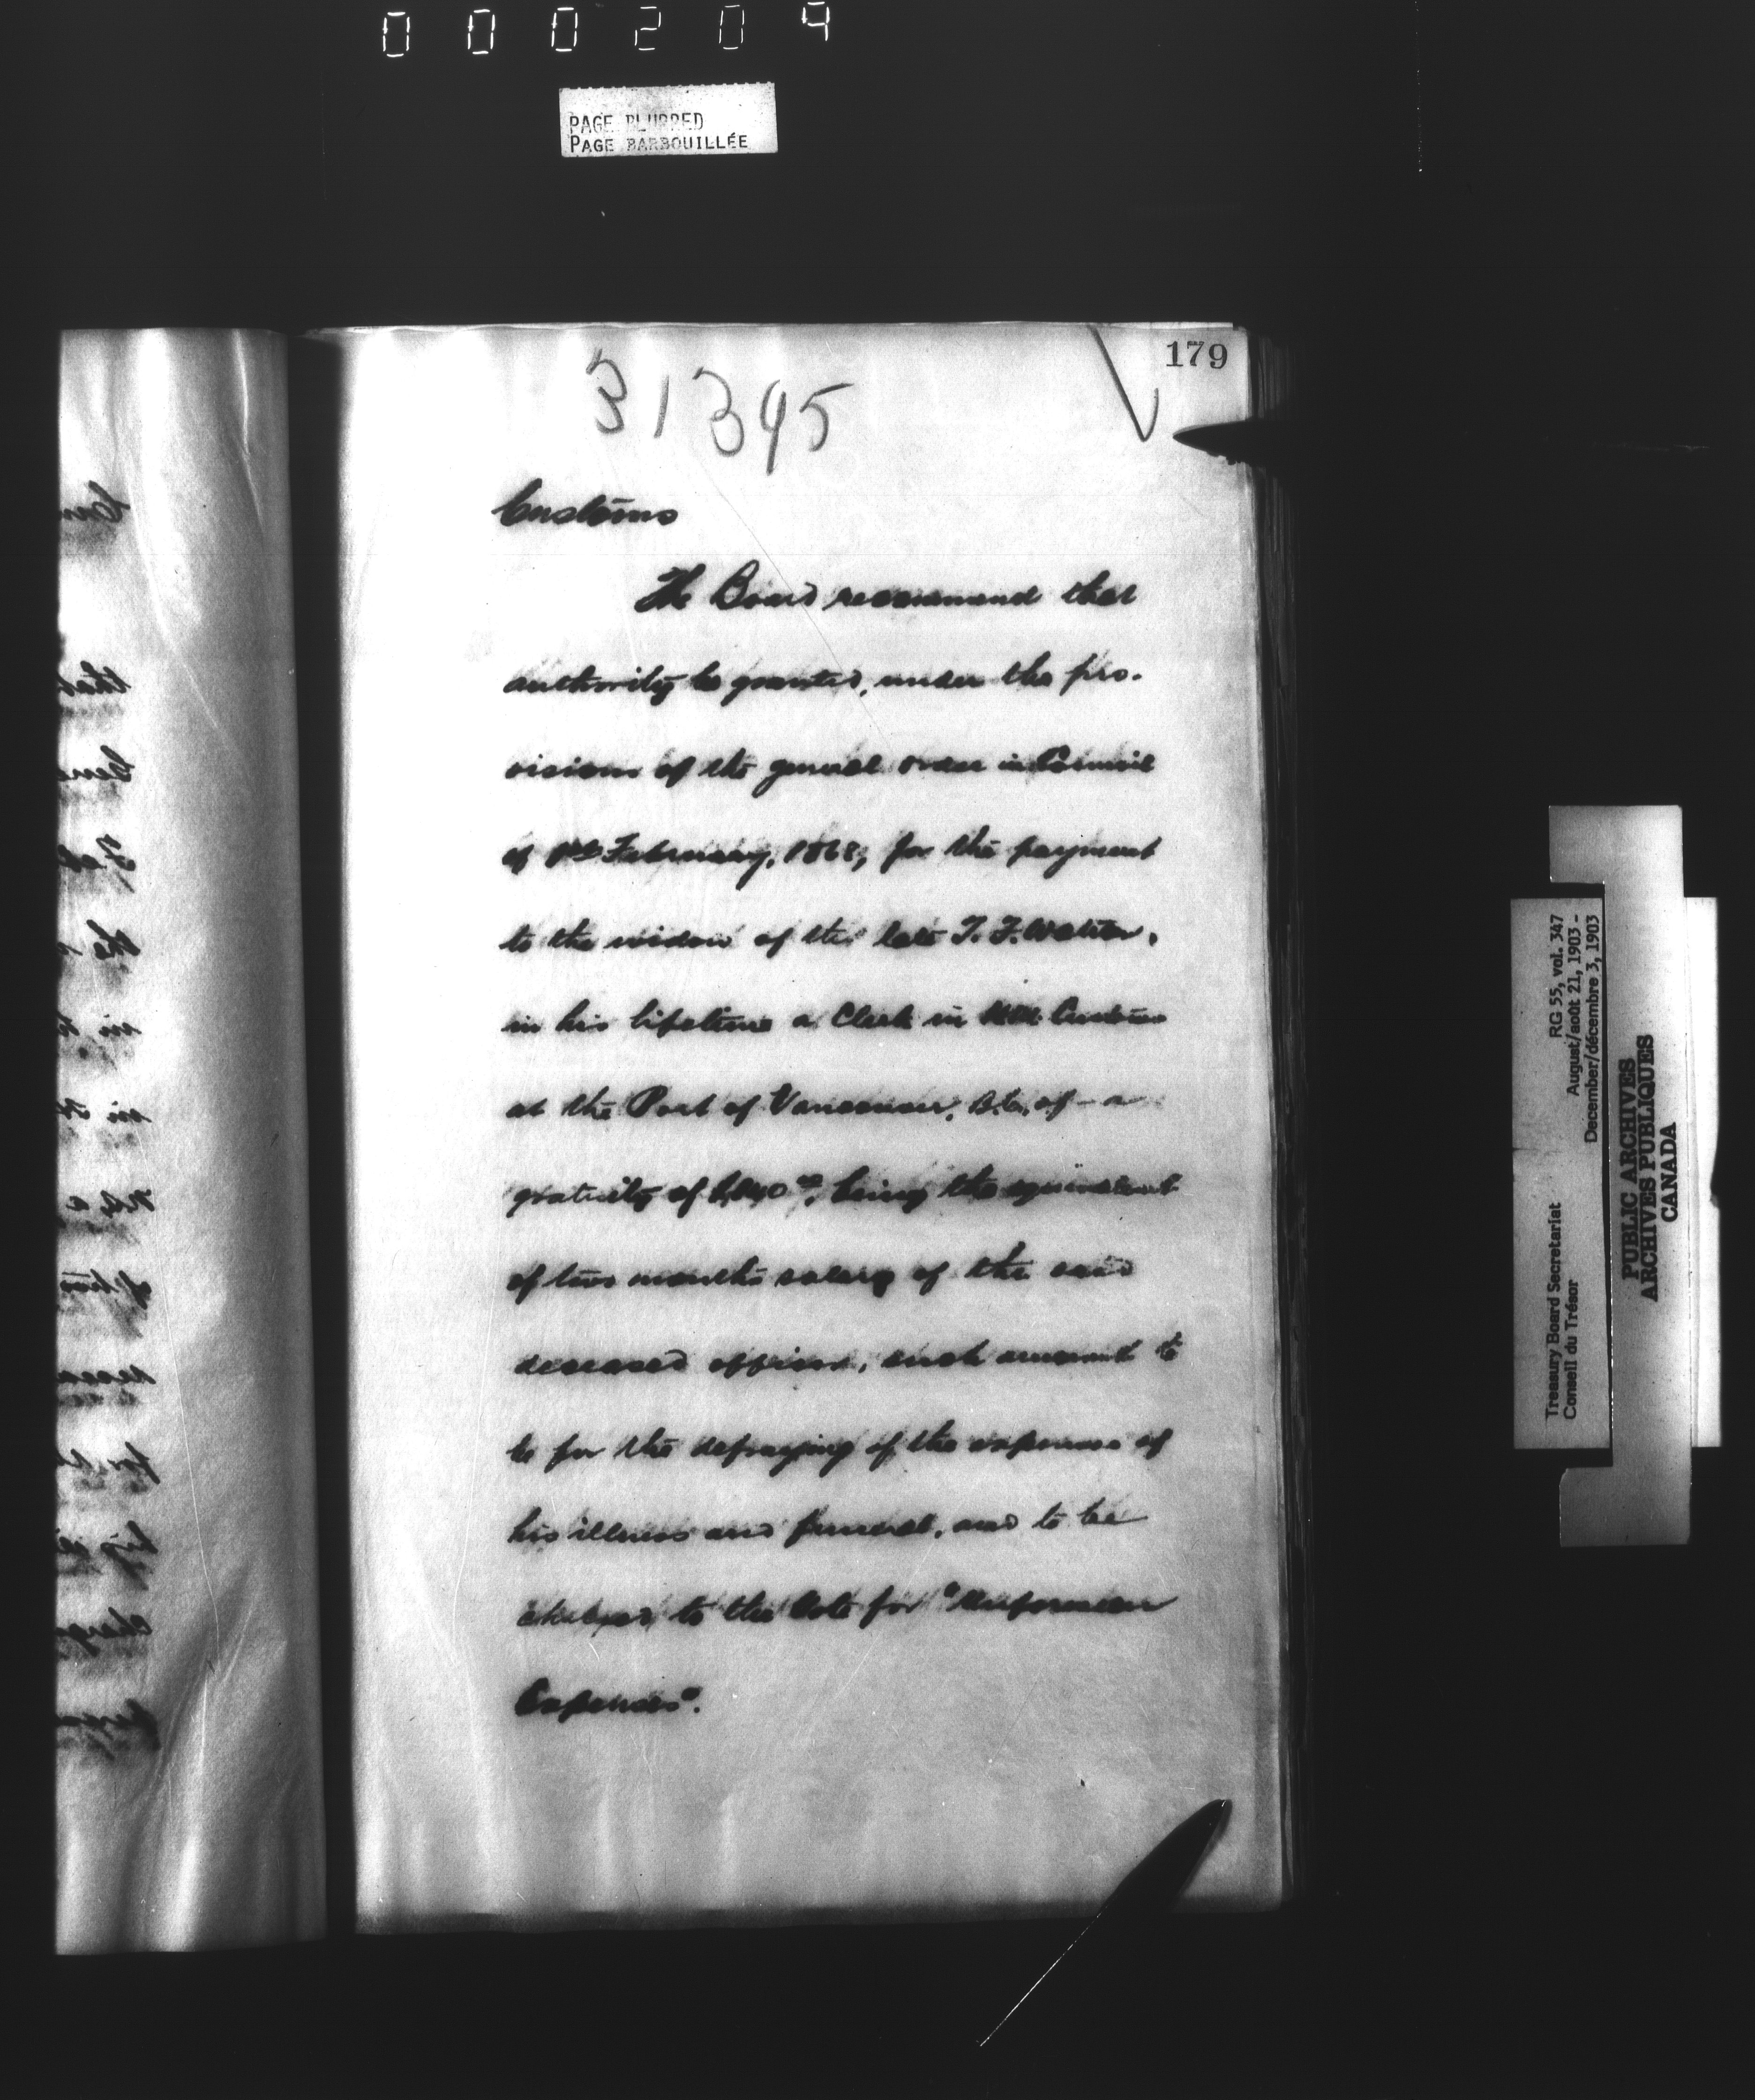 000204
PAGE BLURRED
PAGE BARBOUILLÉE
179
31395
Customs
The Board recommend that
authority be granted, under the pro-
visions of the general order in Council
of 1st February, 1868, for the payment
to the widow of the late T. F.
in his lifetime a Clerk in H.M. Customs
at the Port of Vancouver, B.C., of a
gratuity of being the equivalent
of two months salary of the said
deceased officer, such amount to
be for the defraying of the expenses of
his illness and funeral, and to be
charged to the Vote for "Unforeseen
Expenses".
Treasury Board Secretariat RG 55, vol. 347
Conseil du Trésor August/août 21, 1903 -
December/décembre 3, 1903
PUBLIC ARCHIVES
ARCHIVES PUBLIQUES
CANADA